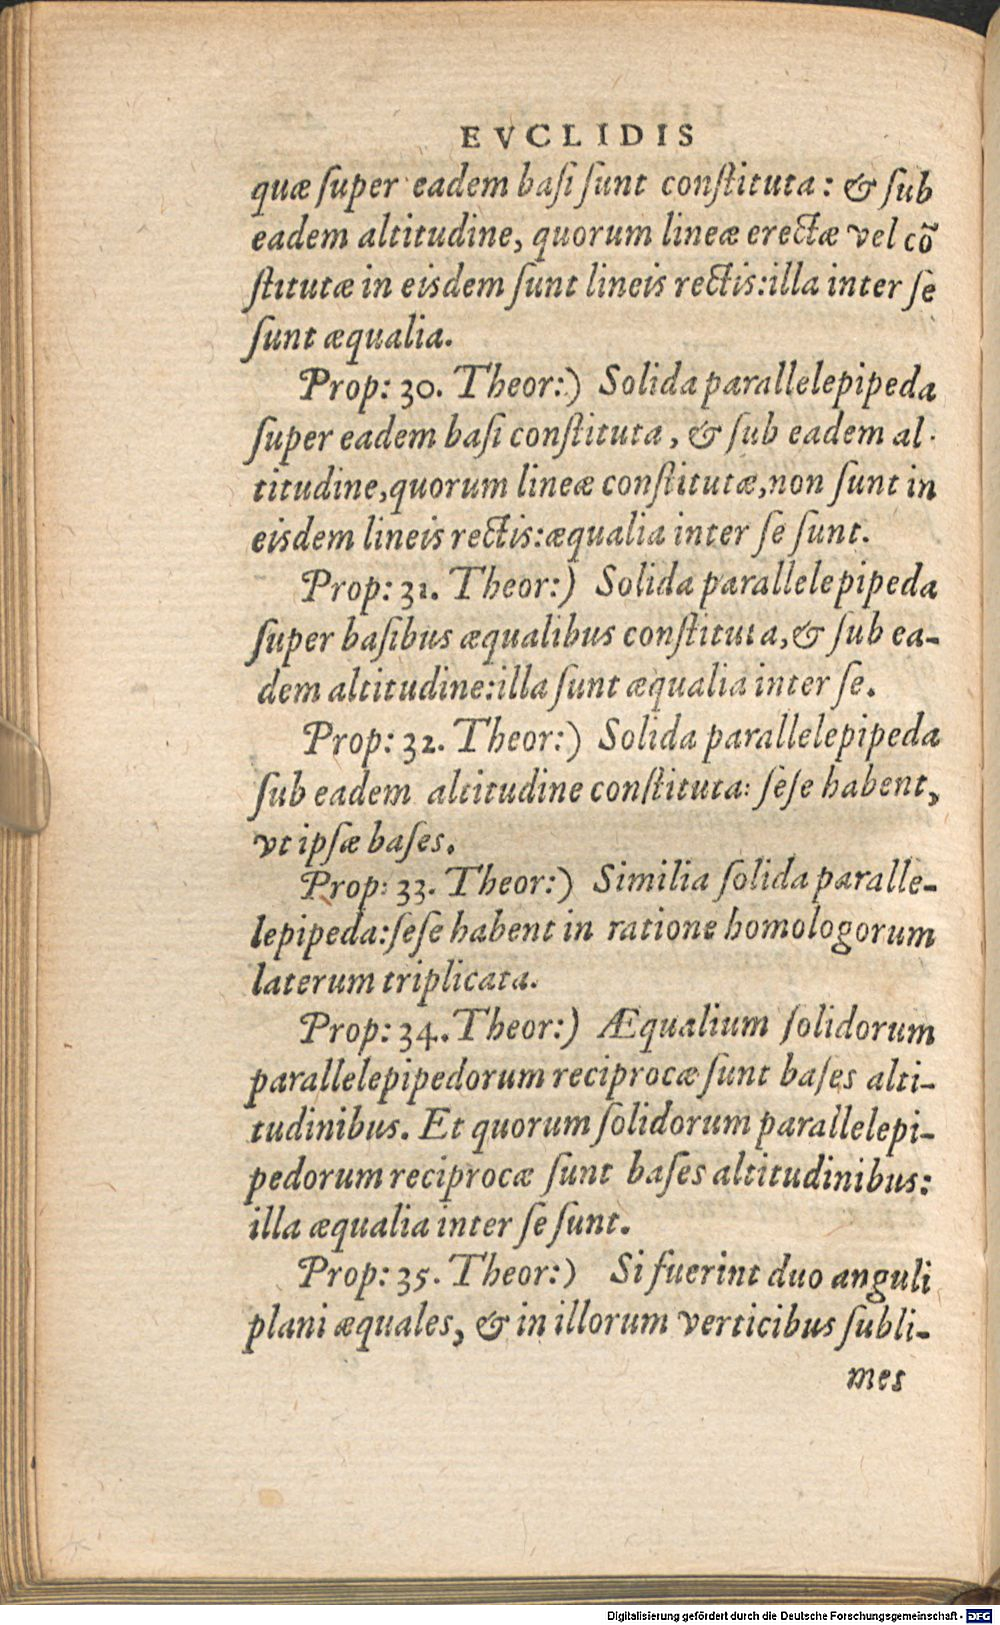 EVCLIDIS
quæ ſuper eadem baſi ſunt conſtituta: & ſub
eadem altitudine, quorum lineæ erectæ vel cõ
ſtitutæ in eisdem ſunt lineis rectis:illa inter ſe
ſunt æqualia.
Prop: 30. Theor:) Solida parallelepipeda
ſuper eadem baſi conſtituta, & ſub eadem al-
titudine,quorum lineæ conſtitutæ,non ſunt in
eisdem lineis rectis:æqualia inter ſe ſunt.
Prop: 31. Theor:) Solida parallelepipeda
ſuper baſibus æqualibus conſtituta,& ſub ea-
dem altitudine:illa ſunt æqualia inter ſe.
Prop: 32. Theor:) Solida parallelepipeda
ſub eadem altitudine conſtituta: ſeſe habent,
vt ipſæ baſes.
Prop: 33. Theor:) Similia ſolida paralle-
lepipeda:ſeſe habent in ratione homologorum
laterum triplicata.
Prop: 34. Theor:) Æqualium ſolidorum
parallelepipedorum reciprocæ ſunt baſes alti-
tudinibus. Et quorum ſolidorum parallelepi-
pedorum reciprocæ ſunt baſes altitudinibus:
illa æqualia inter ſe ſunt.
Prop: 35. Theor:) Si fuerint duo anguli
plani æquales, & in illorum verticibus ſubli-
mes
Digitalisierung gefördert durch die Deutsche Forschungsgemeinschaft - DFG